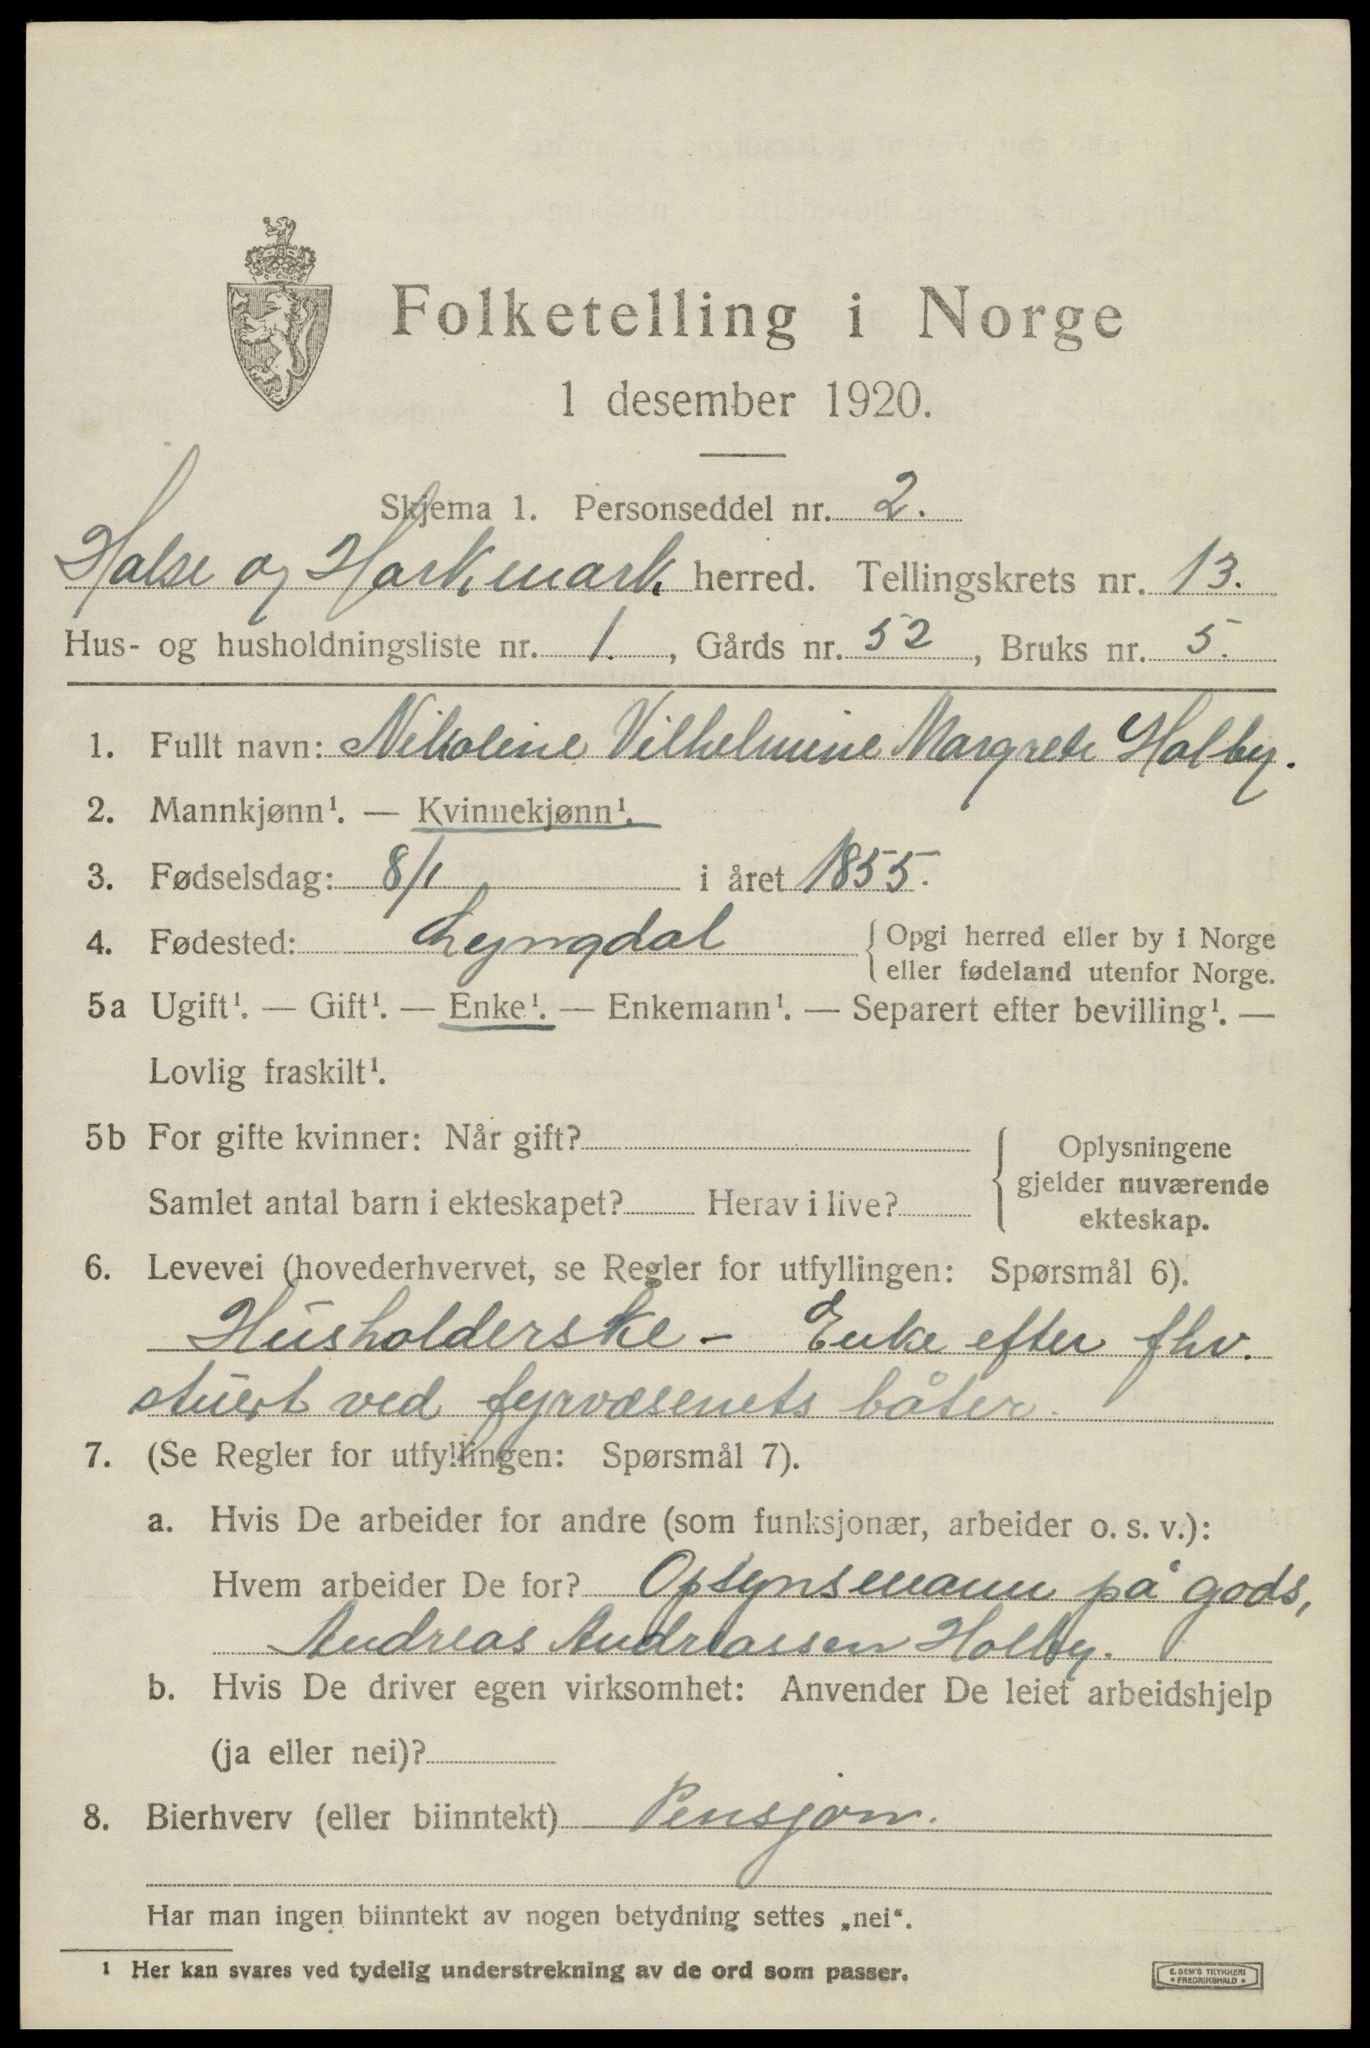 Folketelling i Norge
1 desember 1920.
Skjema 1. Personseddel nr. 2.
Halse og Harkmark herred. Tellingskrets nr. 13.
Hus- og husholdningsliste nr. 1., Gårds nr. 52, Bruks nr. 5.
1. Fullt navn: Nikoline Vilhelmine Margrete Holby.
2. Mannkjønn¹. — Kvinnekjønn¹.
3. Fødselsdag: 8/1 i året 1855.
4. Fødested: Lyngdal { Opgi herred eller by i Norge
eller fødeland utenfor Norge.
5a Ugift¹. — Gift¹. — Enke¹. — Enkemann¹. — Separert efter bevilling¹. —
Lovlig fraskilt¹.
5b For gifte kvinner: Når gift?
Samlet antal barn i ekteskapet? Herav i live?
{ Oplysningene
gjelder nuværende
ekteskap.
6. Levevei (hovederhvervet, se Regler for utfyllingen: Spørsmål 6).
Husholderske - Enke efter fhv.
stuert ved fyrvæsenets båter.
7. (Se Regler for utfyllingen: Spørsmål 7).
a. Hvis De arbeider for andre (som funksjonær, arbeider o. s. v.):
Hvem arbeider De for? Opsynsmann på gods,
Andreas Andreassen Holby.
b. Hvis De driver egen virksomhet: Anvender De leiet arbeidshjelp
(ja eller nei)?
8. Bierhverv (eller biinntekt) Pensjon.
Har man ingen biinntekt av nogen betydning settes „nei“.
¹ Her kan svares ved tydelig understrekning av de ord som passer.
E. SEM'S TRYKKERI
* FREDRIKSHALD *